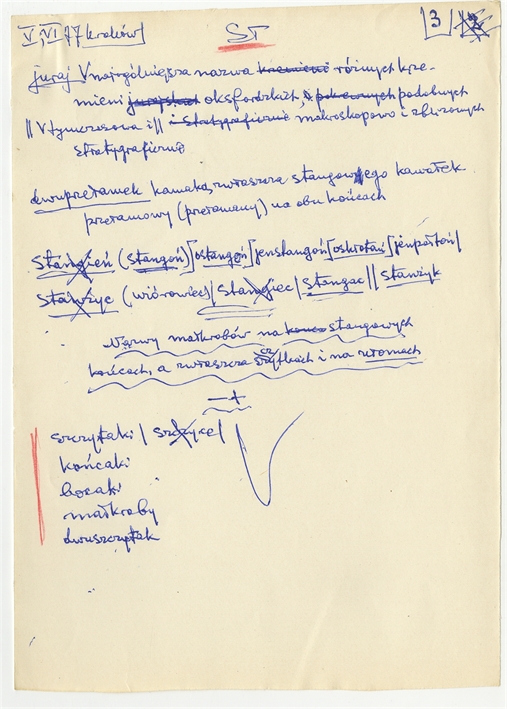 V, VI 77 Kraków ST 3 2
juraj V najogólniejsza nazwa krzemieni różnych krze-
mieni oksfordzkich, pokrewnych podobnych
|| V tymczasowa i || i stratygraficznie makroskopowo i zbliżonych
stratygraficznie
dwuprzełamek kamaka, zwłaszcza stangowego kawałek
przełamowy (przełamany) na obu końcach
Stangień (stangoń) [ostangoń [jenstangoń [oskrotań [jenpartoń /
Stanżyc (wiórowiec) / Stangiec / Stangac || Stanżyk
Nazwy małkrabów na końco stangowych
końcach, a zwłaszcza szczytkach i na ułomach
— +
szczytaki / szczyce /
końcaki
bocaki
małkraby
dwuszczytak